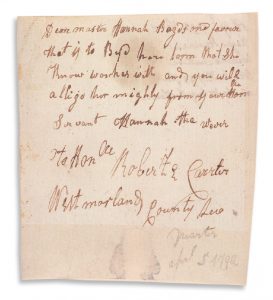 Dear master Hannah Bagds one favour
that is to Byd hare loom that she
know workes with and you will
abligo hor mighly from your Hom
Servant Hannah the wever
To Hon ble
Robert Carter
Westmorland County
April 5 1792